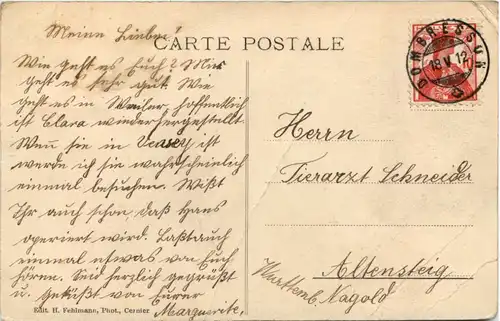 Meine Lieben!
CARTE POSTALE
Wie geht es Euch? Mir
geht es sehr gut. Wie
geht es in Weiler, hoffentlich
ist Clara wiederhergestellt.
Wen sie in ist
werde ich sie wahrscheinlich
einmal besuchen. Wißt
Ihr auch schon daß Hans
operiert wird. Laßt auch
einmal etwas von Euch
hören. Seid herzlich gegrüßt
u. geküßt von Eurer
Marguerite.
Edit. H. Fehlmann, Phot., Cernier
DOMBRESSON
18 V 12
Herrn
Tierarzt Schneider
Altensteig
Württemb. Nagold